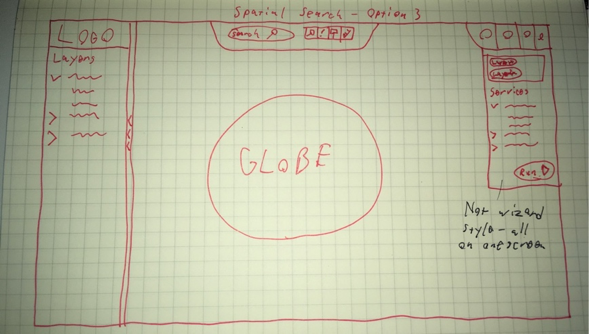 Spatial Search - Option 3
LOGO
Search
Layers
GLOBE
Services
Run
Not wizard
style - all
on one screen